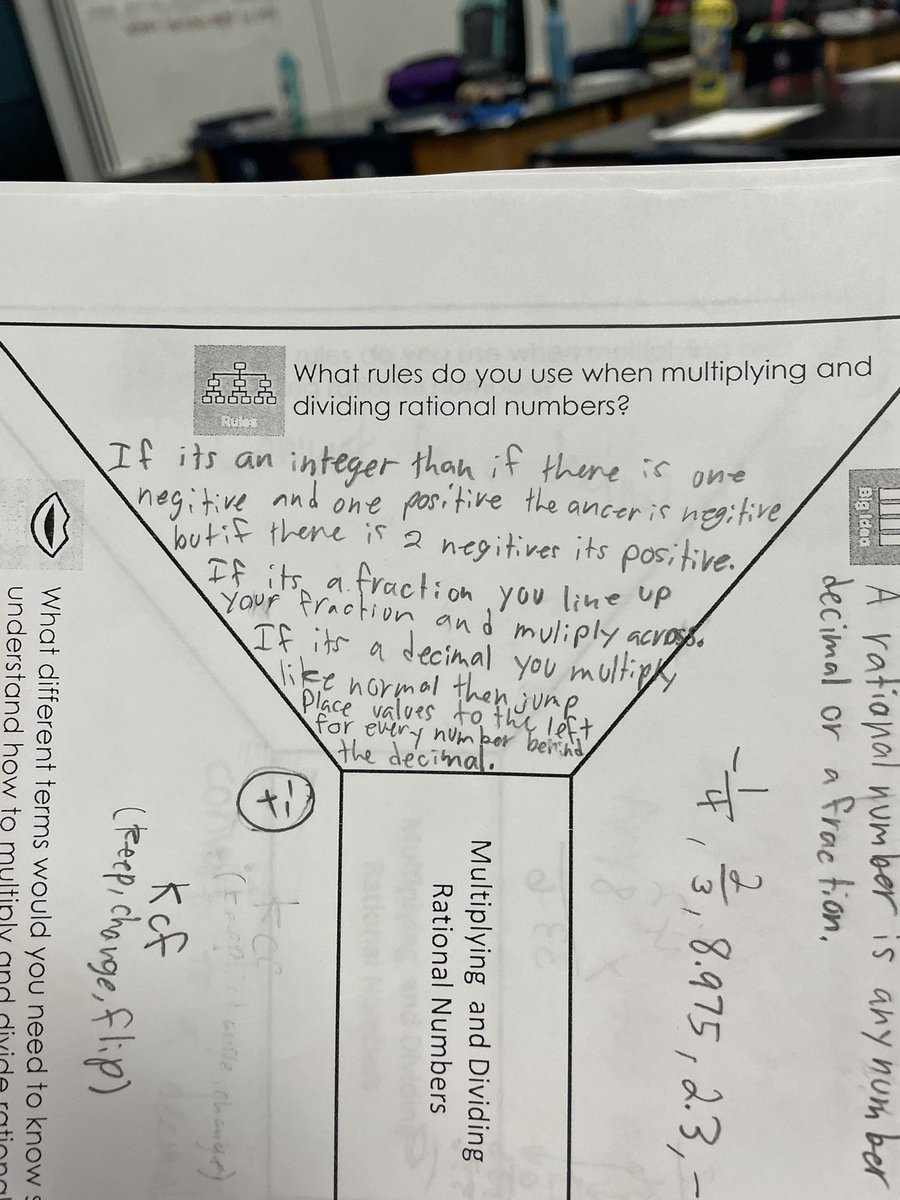 Rules
What rules do you use when multiplying and
dividing rational numbers?
If its an integer than if there is one
negitive and one positive the ancer is negitive
but if there is 2 negitives its positive.
If its a fraction you line up
your fraction and muliply across.
If its a decimal you multiply
like normal then jump
Place values to the left
for every number behind
the decimal.
Big Idea
A rational number is any number
decimal or a fraction.
-1/4, 2/3, 8.975, 2.3, -
Multiplying and Dividing
Rational Numbers
What different terms would you need to know
understand how to multiply and divide rational
Kcf
(keep, change, flip)